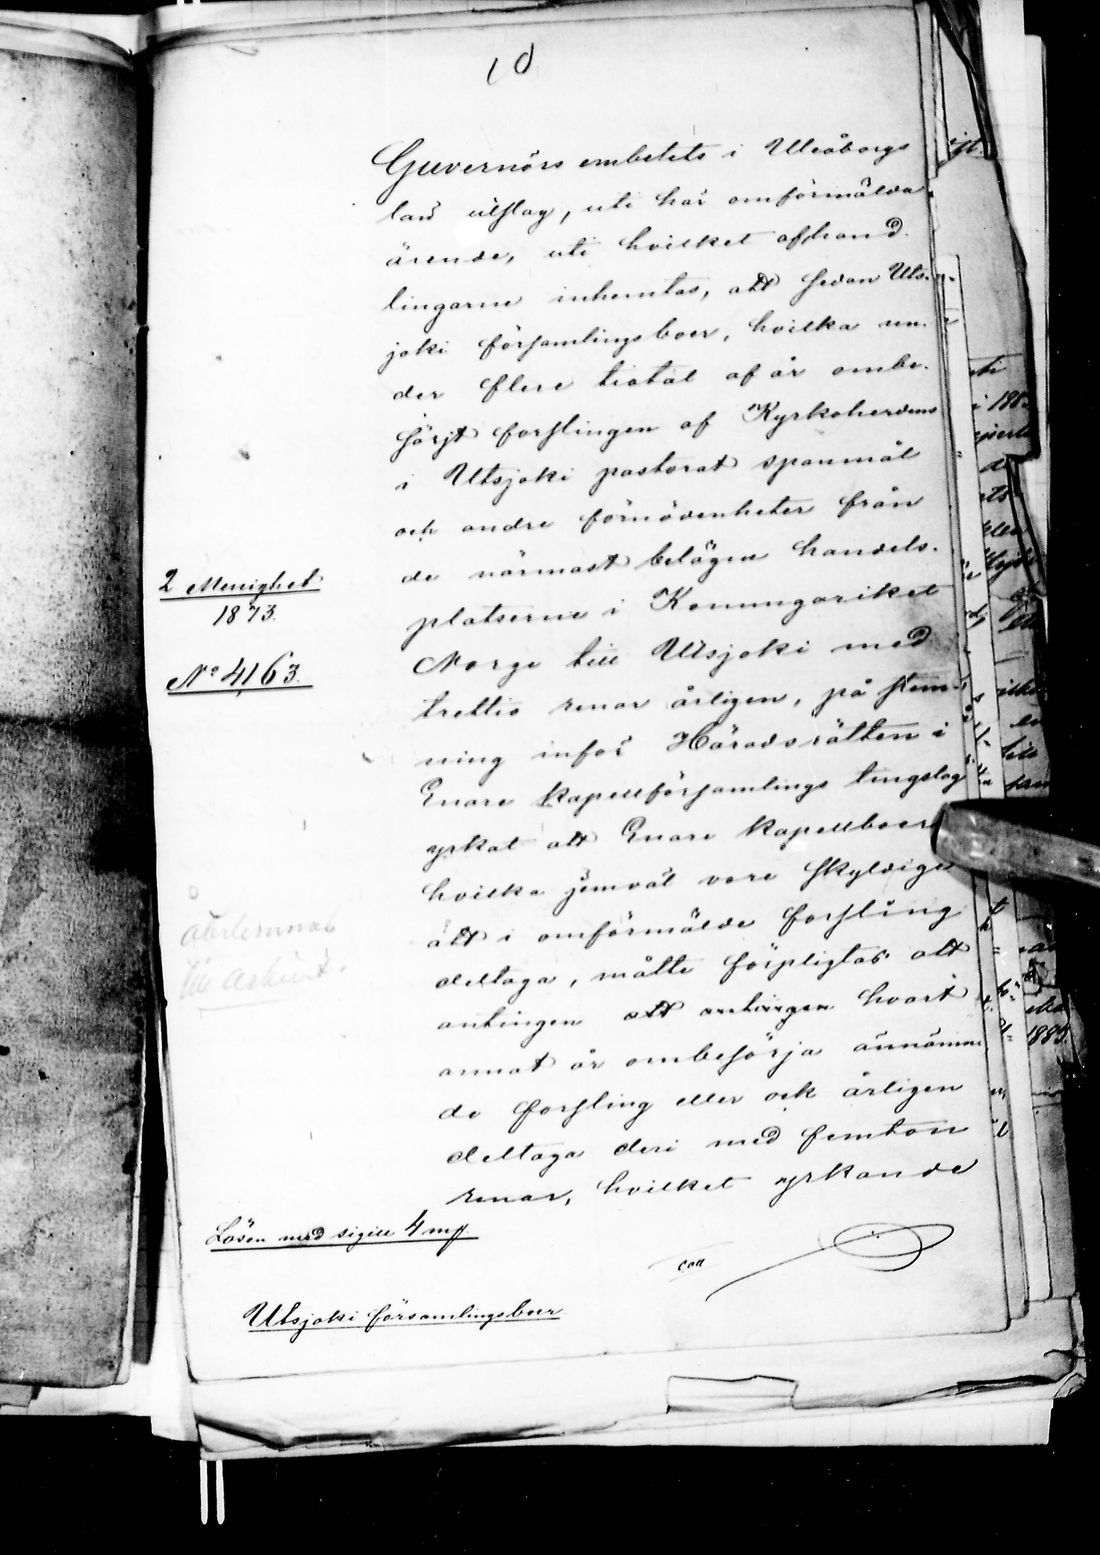 10
Guvernörs embetets i Uleåborgs
län utslag, uti här omförmälda
ärende, uti hvilket afhand
lingarne inhemtas, att sedan Uts-
joki församlingsboer, hvilka un-
der flere tiotal af år ombe-
sörjt forslingen af Kyrkoherdens
i Utsjoki pastorat spanmål
och andre förnödenheter från
de närmast belägna handels-
platserne i Konungariket
Norge till Utsjoki med
trettio renar årligen, på stem-
ning inför Häradsrätten i
Enare kapellförsamlings tingslag
yrkat att Enare kapellboer
hvilka jemväl vore skyldige
att i omförmälde forsling
deltaga, måtte förpligtas att
antingen att antingen hvart
annat år ombesörja ännämn
de forsling eller ock årligen
deltaga deri med femton
renar, hvilket yrkande
2 Menighet
1873.
No 4163.
återlemnas
till arkivet.
Lösen med sigill 4 mk
coll
Utsjoki församlingsboer
1883.